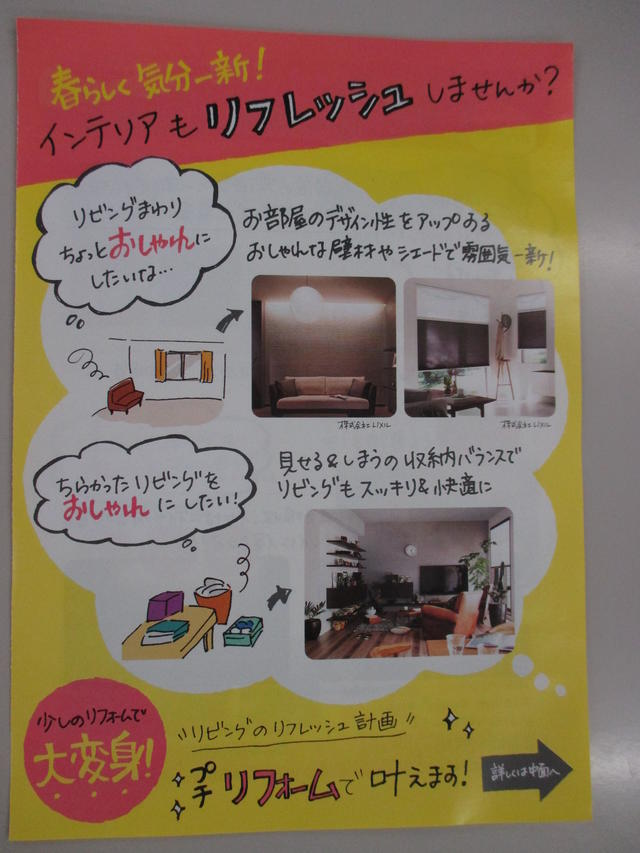 春らしく気分一新!
インテリアもリフレッシュしませんか?
リビングまわり
ちょっとおしゃれに
したいな…
お部屋のデザイン性をアップする
おしゃれな壁材やシェードで雰囲気一新!
株式会社LIXIL
株式会社LIXIL
ちらかったリビングを
おしゃれにしたい!
見せる&しまうの収納バランスで
リビングもスッキリ&快適に
少しのリフォームで
大変身!
"リビングのリフレッシュ計画"
プチリフォームで叶えます!
詳しくは中面へ